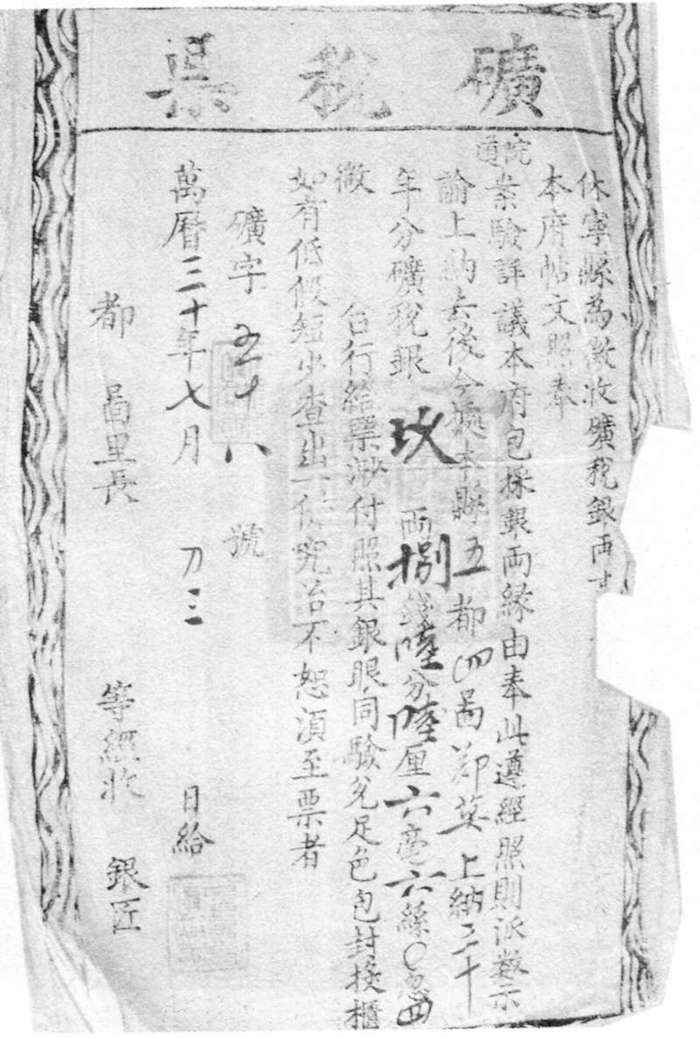 礦稅票
休寧縣為徵收礦稅銀兩
本府帖文照奉
院道
案驗詳議本府包採銀兩緣由奉此遵經照則派數示
諭上納去後今據本縣五都四啚鄭英上納三十
年分礦稅銀玖兩捌錢陸分陸厘六毫六絲〇忽四
徵
合行給票付照其銀眼同驗兌足色包封投櫃
如有低假短少查出究治不恕須至票者
礦字五十八號
萬曆三十年七月 日給
都 啚里長 等經收 銀匠